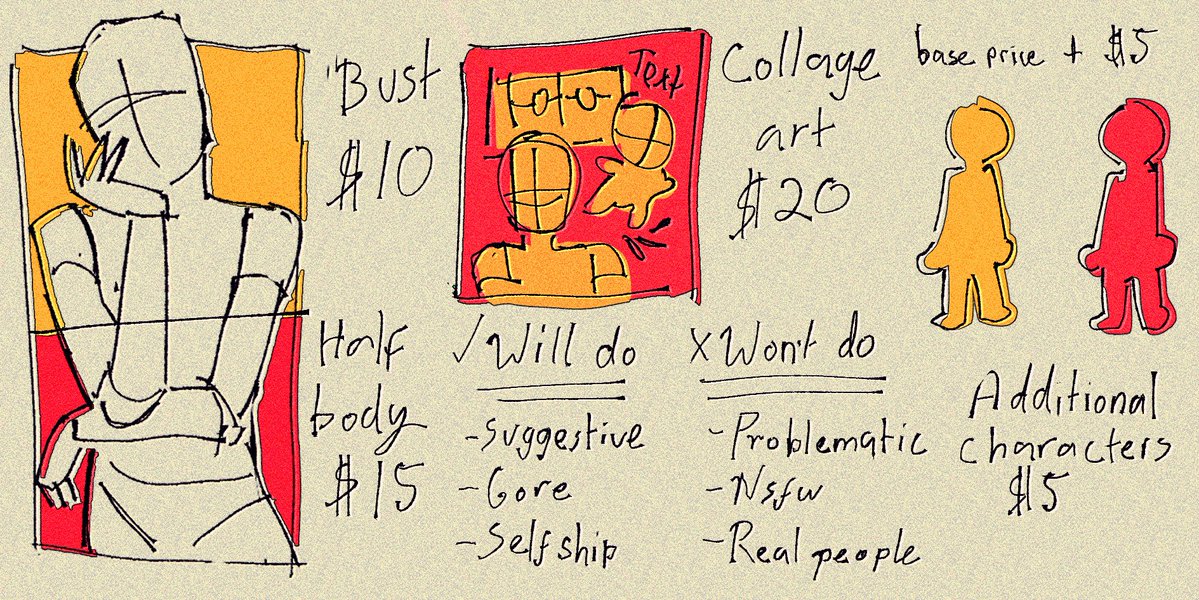 Bust
$10
Half
body
$15
Text
Collage
art
$20
base price + $5
Additional
characters
$5
✓ Will do
-Suggestive
-Gore
-Selfship
X Won't do
-Problematic
-Nsfw
-Real people